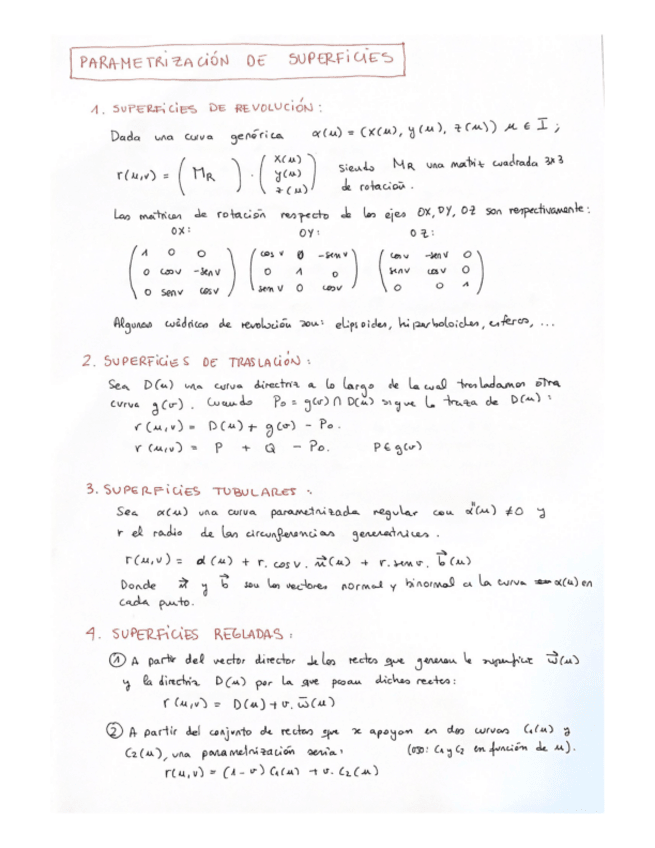 PARAMETRIZACIÓN DE SUPERFICIES
1. SUPERFICIES DE REVOLUCIÓN:
Dada una curva genérica α(u) = (x(u), y(u), z(u)) u ∈ I ;
r(u,v) = ( M_R ) · ( x(u) y(u) z(u) ) siendo M_R una matriz cuadrada 3x3
de rotación.
Las matrices de rotación respecto de los ejes OX, OY, OZ son respectivamente:
OX: OY: OZ:
1 0 0 cos v 0 -sen v cos v -sen v 0
0 cos v -sen v 0 1 0 sen v cos v 0
0 sen v cos v sen v 0 cos v 0 0 1
Algunas cuádricas de revolución son: elipsoides, hiperboloides, esferas, ...
2. SUPERFICIES DE TRASLACIÓN:
Sea D(u) una curva directriz a lo largo de la cual trasladamos otra
curva g(v). Cuando P₀ = g(v) ∩ D(u) sigue la traza de D(u):
r(u,v) = D(u) + g(v) - P₀.
r(u,v) = P + Q - P₀. P ∈ g(v)
3. SUPERFICIES TUBULARES:
Sea α(u) una curva parametrizada regular con α''(u) ≠ 0 y
r el radio de las circunferencias generatrices.
r(u,v) = α(u) + r. cos v. n⃗(u) + r. sen v. b⃗(u)
Donde n⃗ y b⃗ son los vectores normal y binormal a la curva α(u) en
cada punto.
4. SUPERFICIES REGLADAS:
① A partir del vector director de las rectas que generan la superficie w⃗(u)
y la directriz D(u) por la que pasan dichas rectas:
r(u,v) = D(u) + v. w⃗(u)
② A partir del conjunto de rectas que se apoyan en dos curvas C₁(u) y
C₂(u), una parametrización sería: (OJO: C₁ y C₂ en función de u).
r(u,v) = (1-v) C₁(u) + v. C₂(u)